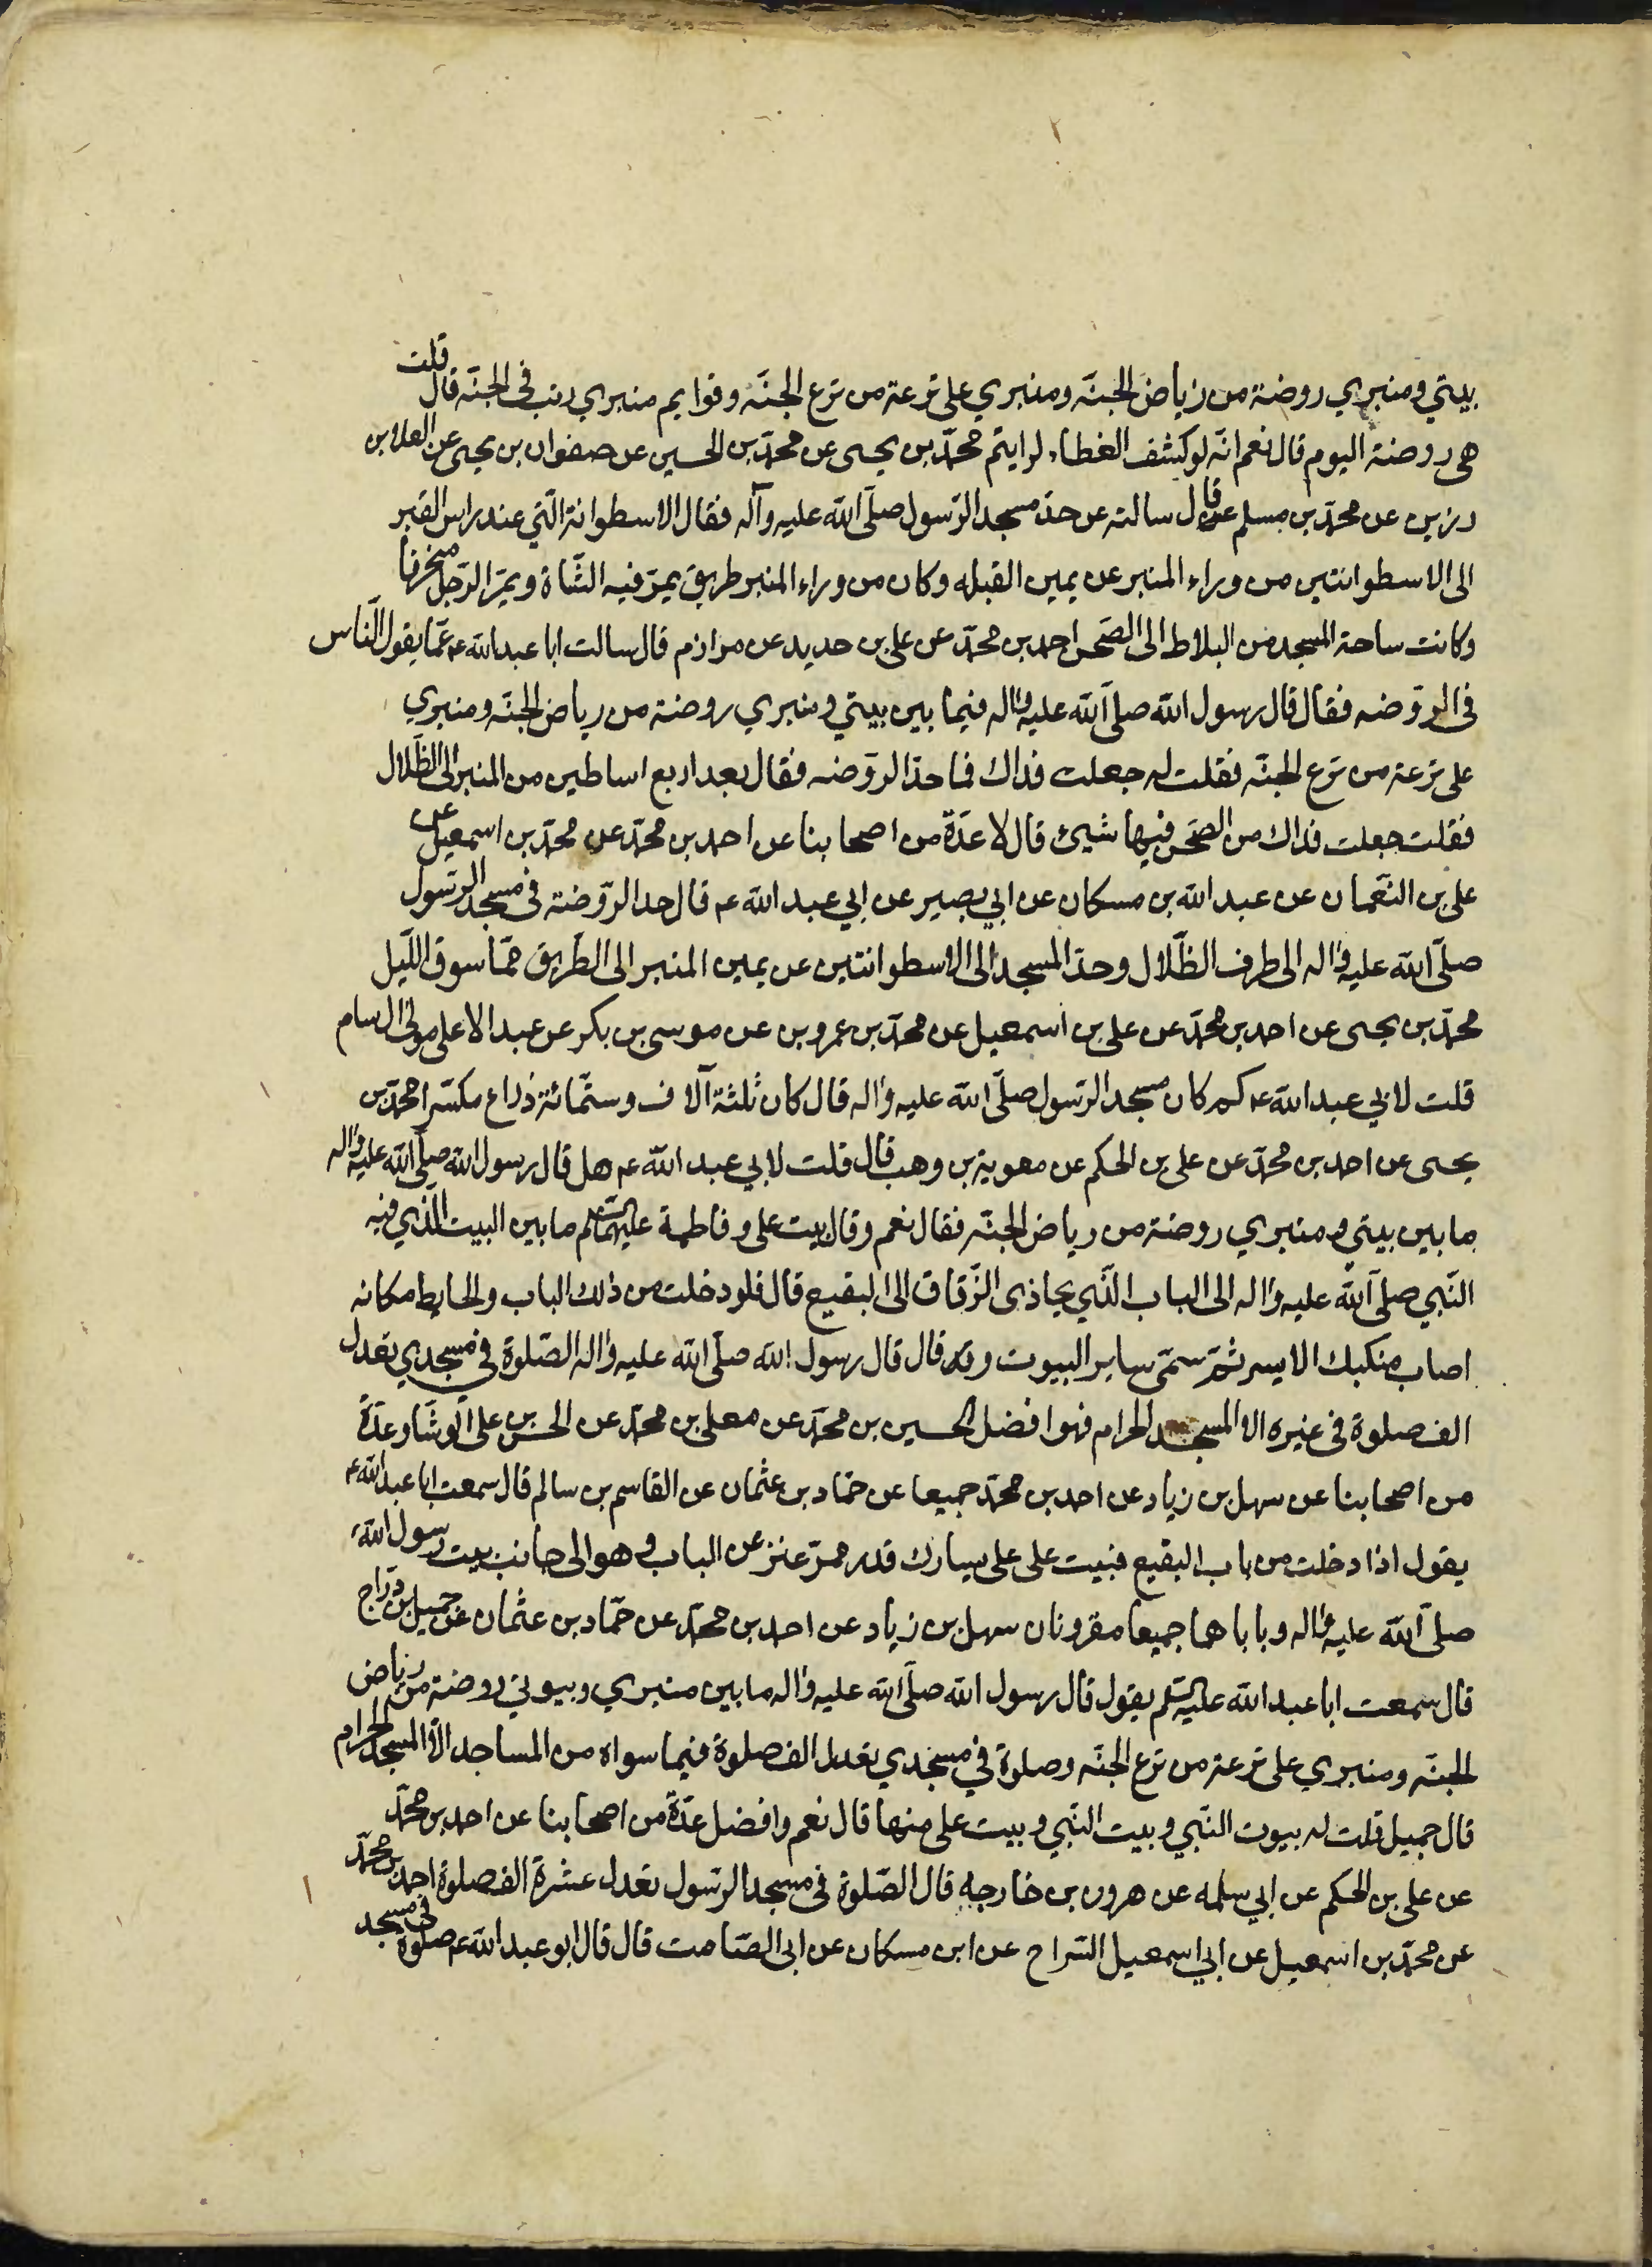 بيتي ومنبري روضة من رياض الجنّه ومنبري على ترعة من ترع الجنّه وقوايم منبري رتب فى الجنّه قال قلت
هى روضة اليوم قال نعم انّه لو كشف الغطاء لرايتم محمّد بن يحيى عن محمّد بن الحسين عن صفوان بن يحيى عن العلا بن
رزين عن محمّد بن مسلم قال سالته عن حدّ مسجد الرّسول صلّى الله عليه وآله فقال الاسطوانة الّتي عند راس القبر
الى الاسطوانتين من وراء المنبر عن يمين القبله وكان من وراء المنبر طريق يمرّ فيه الشّاة ويمرّ الرّجل منحرفا
وكانت ساحة المسجد من البلاط الى الصّحن احمد بن محمّد عن على بن حديد عن مرازم قال سالت ابا عبد الله ع عمّا يقول النّاس
فى الروّضه فقال قال رسول الله صلّى الله عليه واله فيما بين بيتي ومنبري روضة من رياض الجنّه ومنبري
على ترعة من ترع الجنّه فقلت له جعلت فداك فما حدّ الروّضه فقال بعد اربع اساطين من المنبر الى الظّلال
فقلت جعلت فداك من الصّحن فيها شيئ قال لا عدّة من اصحابنا عن احمد بن محمّد عن محمّد بن اسمعيل عن
على بن النّعمان عن عبد الله بن مسكان عن ابي بصير عن ابي عبد الله ع قال حد الرّوضة فى مسجد الرّسول
صلّى الله عليه واله الى طرف الظّلال وحدّ المسجد الى الاسطوانتين عن يمين المنبر الى الطّريق ممّا سوق اللّيل
محمّد بن يحيى عن احمد بن محمّد عن على بن اسمعيل عن محمّد بن عمرو بن عن موسى بن بكر عن عبد الاعلى مولى ال سام
قلت لابي عبد الله ع كم كان مسجد الرّسول صلّى الله عليه واله قال كان ثلثة آلاف وستّمائة ذراع مكسّرا محمّد بن
يحيى عن احمد بن محمّد عن على بن الحكم عن معوية بن وهب قال قلت لابي عبد الله ع هل قال رسول الله صلّى الله عليه واله
ما بين بيتي ومنبري روضة من رياض الجنّه فقال نعم وقال بيت على وفاطمة عليهما السّلم ما بين البيت الّذي فيه
النّبي صلّى الله عليه واله الى الباب الّذي يحاذى الزّقاق الى البقيع قال فلو دخلت من ذلك الباب والحايط مكانه
اصاب منكبك الايسر ثمّ سمّى ساير البيوت وقد قال قال رسول الله صلّى الله عليه واله الصّلوة في مسجدي تعدل
الف صلوة فى غيره الا المسجد الحرام فهو افضل الحسين بن محمّد عن معلى بن محمّد عن الحسن بن على الوشّا وعدّة
من اصحابنا عن سهل بن زياد عن احمد بن محمّد جميعا عن حمّاد بن عثمان عن القاسم بن سالم قال سمعت ابا عبد الله ع
يقول اذا دخلت من باب البقيع فبيت على على يسارك قدر ممرّ عنز عن الباب وهو الى جانب بيت رسول الله
صلّى الله عليه واله وباباهما جميعا مقرونان سهل بن زياد عن احمد بن محمّد عن حمّاد بن عثمان عن جميل بن درّاج
قال سمعت ابا عبد الله عليه السّلم يقول قال رسول الله صلّى الله عليه واله ما بين منبري وبيوتي روضة من رياض
الجنّه ومنبري على ترعة من ترع الجنّه وصلوة في مسجدي تعدل الف صلوة فيما سواه من المساجد الّا المسجد الحرام
قال جميل قلت له بيوت النّبي وبيت النّبي وبيت على منها قال نعم وافضل عدّة من اصحابنا عن احمد بن محمّد
عن على بن الحكم عن ابي سلمه عن هرون بن خارجه قال الصّلوة فى مسجد الرّسول تعدل عشرة الف صلوة احمد بن محمّد
عن محمّد بن اسمعيل عن ابي اسمعيل السّراح عن ابن مسكان عن ابى الصّامت قال قال ابو عبد الله ع صلوة فى مسجد